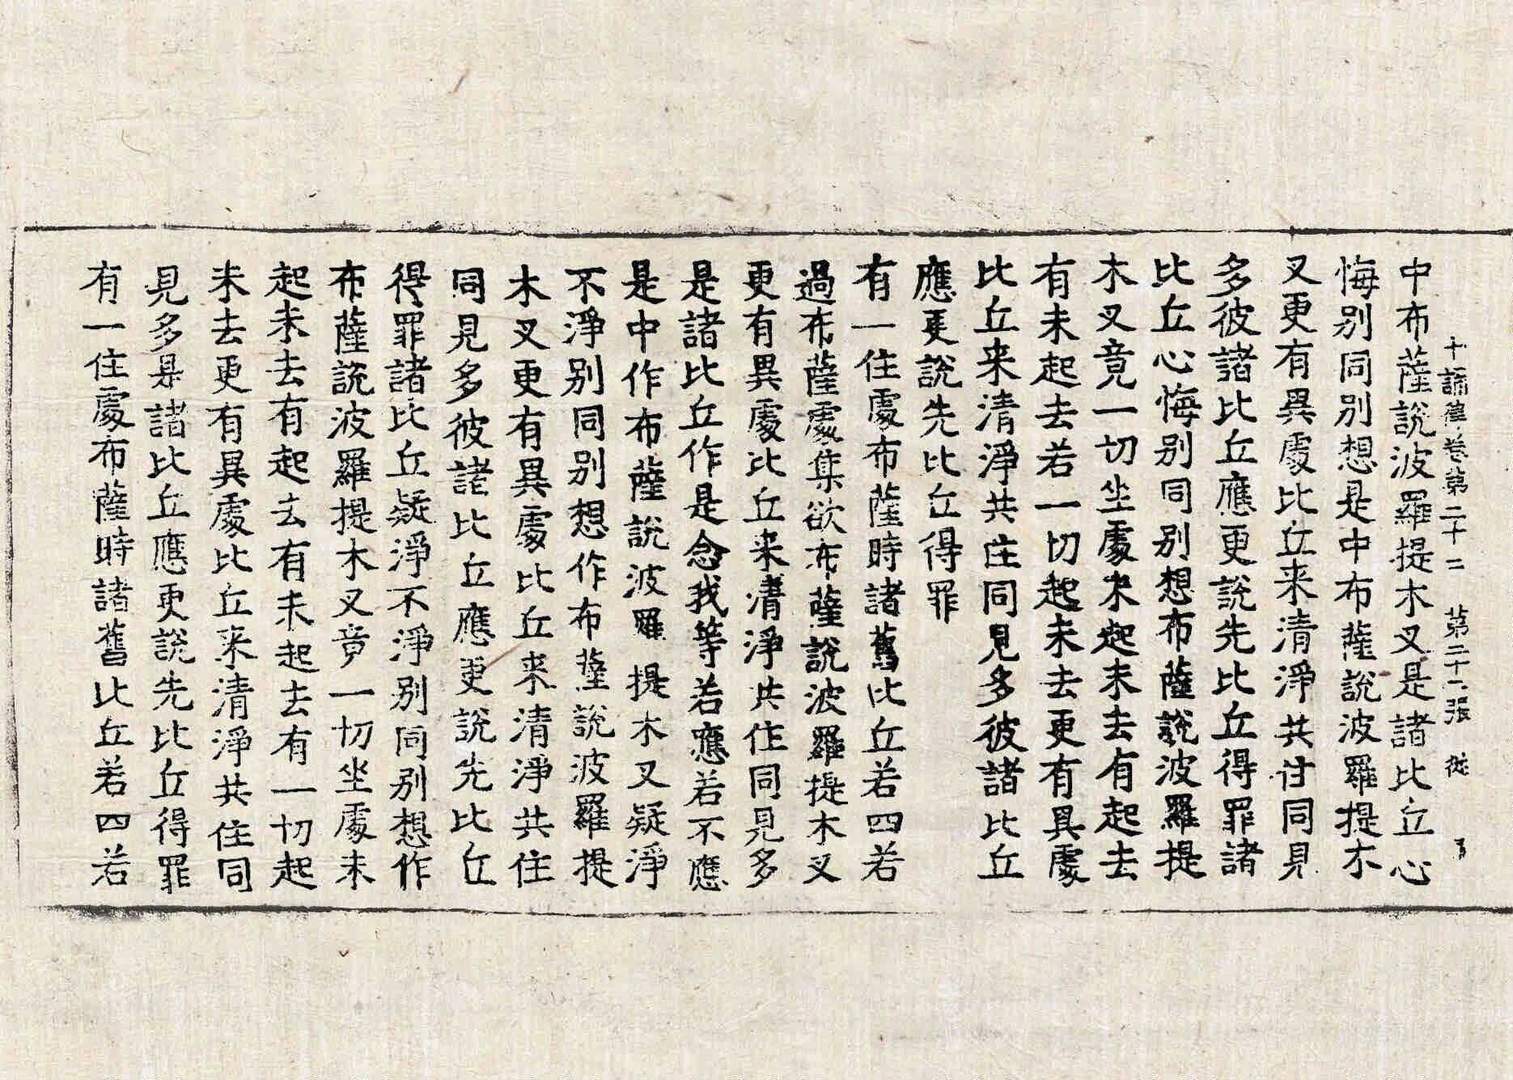 十誦律卷第二十二　第二十二張　從
中布薩說波羅提木又是諸比丘心
悔別同別想是中布薩說波羅提木
又更有異處比丘来清淨共住同見
多彼諸比丘應更說先比丘得罪諸
比丘心悔別同別想布薩說波羅提
木又竟一切坐處未起未去有起去
有未起去若一切起未去更有異處
比丘来清淨共住同見多彼諸比丘
應更說先比丘得罪
有一住處布薩時諸舊比丘若四若
過布薩處集欲布薩說波羅提木又
更有異處比丘来清淨共住同見多
是諸比丘作是念我等若應若不應
是中作布薩說波羅提木又疑淨
不淨別同別想作布薩說波羅提
木又更有異處比丘来清淨共住
同見多彼諸比丘應更說先比丘
得罪諸比丘疑淨不淨別同別想作
布薩說波羅提木又竟一切坐處未
起未去有起去有未起去有一切起
未去更有異處比丘来清淨共住同
見多是諸比丘應更說先比丘得罪
有一住處布薩時諸舊比丘若四若